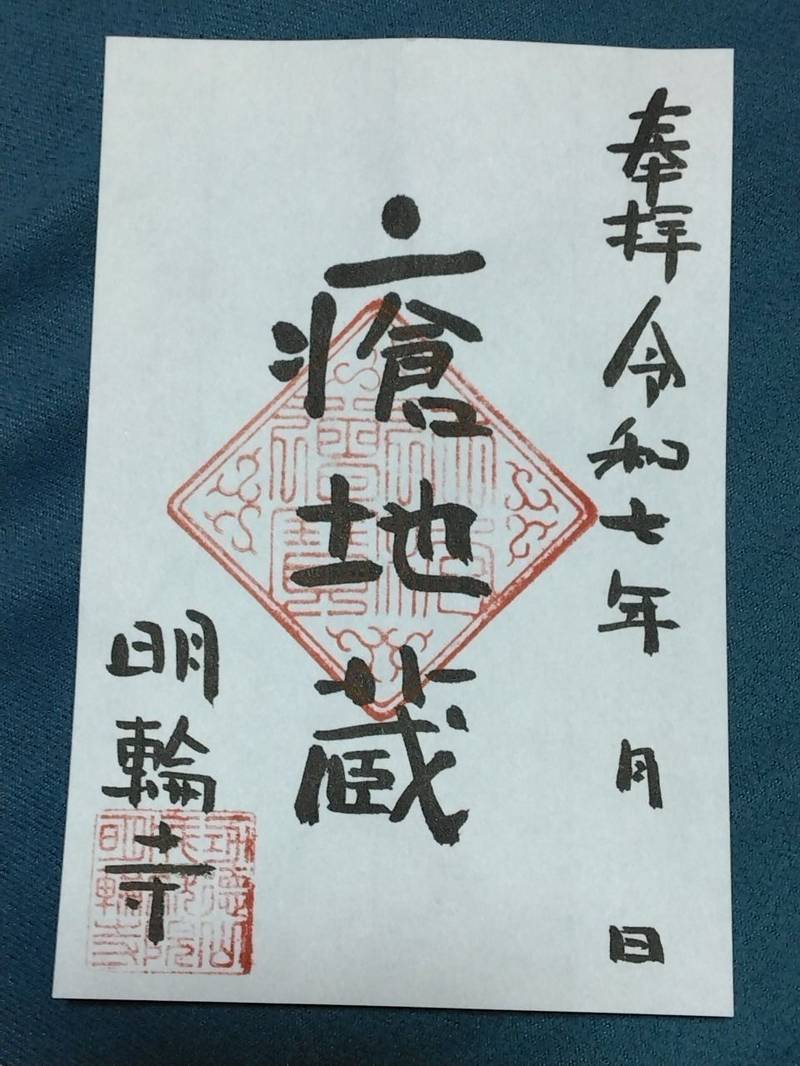 奉拝 令和七年 月 日
瘡地蔵
明輪寺